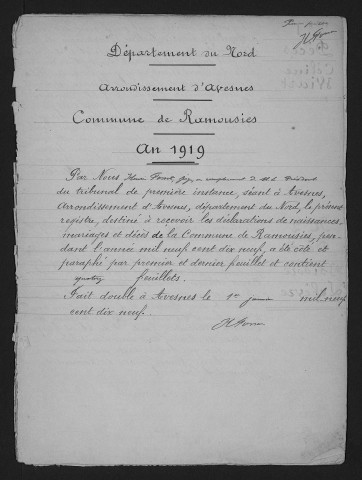 Département du Nord
Arrondissement d'Avesnes
Commune de Ramousies
An 1919
Par Nous Juge en remplacement de M. le Président
du tribunal de première instance, séant à Avesnes,
Arrondissement d'Avesnes, département du Nord, le présent
registre, destiné à recevoir les déclarations de naissances,
mariages et décès de la Commune de Ramousies, pen-
dant l'année mil neuf cent dix neuf, a été coté et
paraphé par premier et dernier feuillet et contient
quatorze feuillets.
Fait double à Avesnes le 1er janvier mil neuf
cent dix neuf